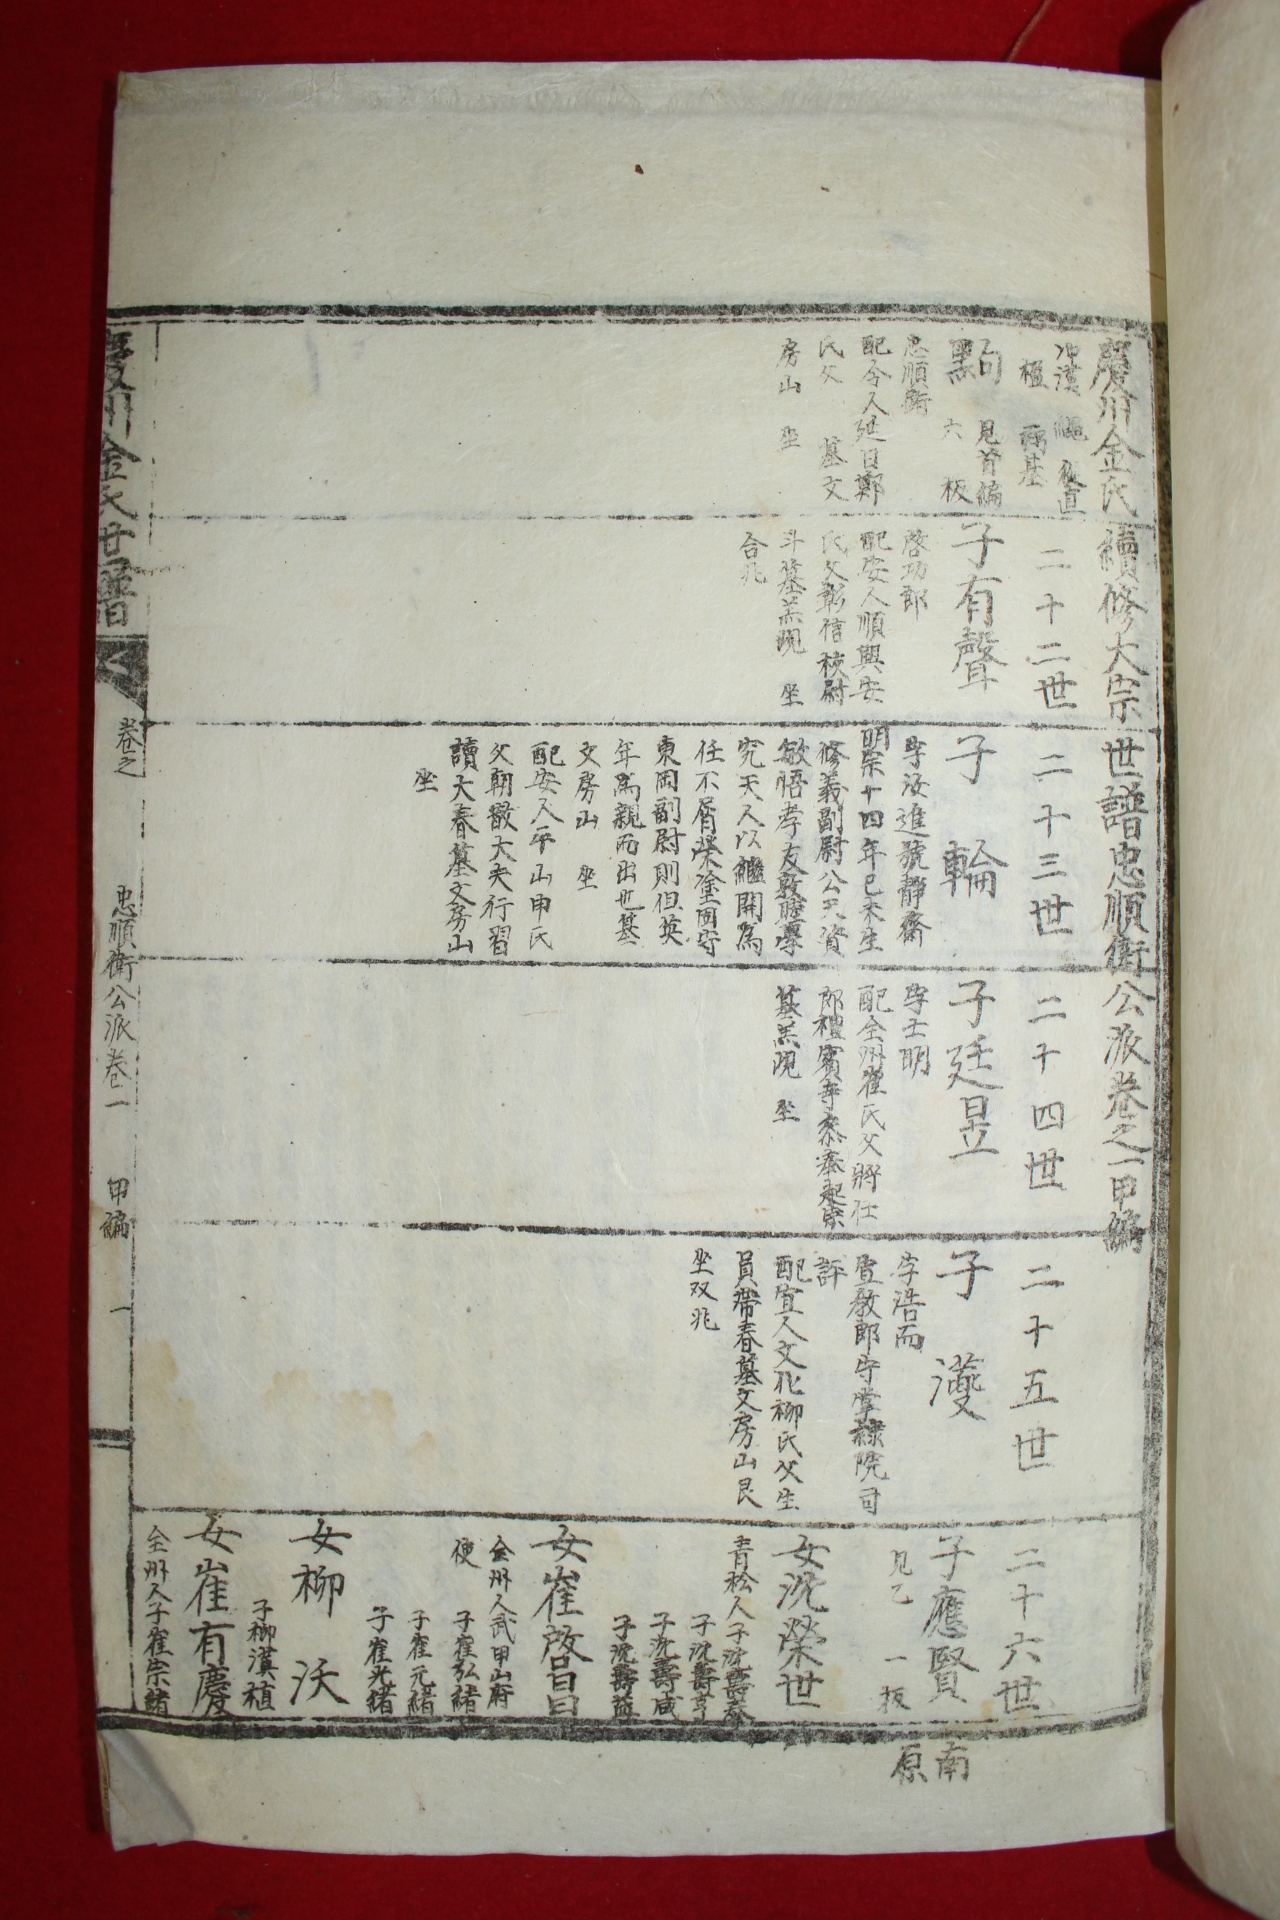 慶州金氏續修大宗世譜忠順衛公派卷之一甲編
冲漢 繩 後直
橿 南基
駒 見首編
六板
忠順衛
配令人延日鄭
氏父 墓文
房山 坐
二十二世
子有聲
啓功郎
配安人順興安
氏父彰信校尉
斗墓羔峴 坐
合兆
二十三世
子 輪
字汝進號靜齋
明宗十四年己未生
修義副尉公天資
敏悟孝友敦睦學
究天人以繼開爲
任不屑榮塗固守
東岡副尉則但英
年爲親而出也墓
文房山 坐
配安人平山申氏
父朝散大夫行習
讀大春墓文房山
坐
二十四世
子廷昱
字士明
配全州崔氏父將仕
郎禮賓寺參奉起宗
墓羔峴 坐
二十五世
子
字浩而
宣敎郎守掌隷院司
評
配宜人文化柳氏父生
員帶春墓文房山艮
坐双兆
二十六世
子應賢
見乙 一板
南
原
女沈榮世
青松人子沈壽泰
子沈壽亨
子沈壽咸
子沈壽益
女崔啓昌
全州人武甲山府
使
子崔弘緖
子崔元緖
子崔光緖
女柳 沃
子柳漢植
女崔有慶
全州人子崔宗緖
慶州金氏世譜
卷之
忠順衛公派卷一
甲編
一